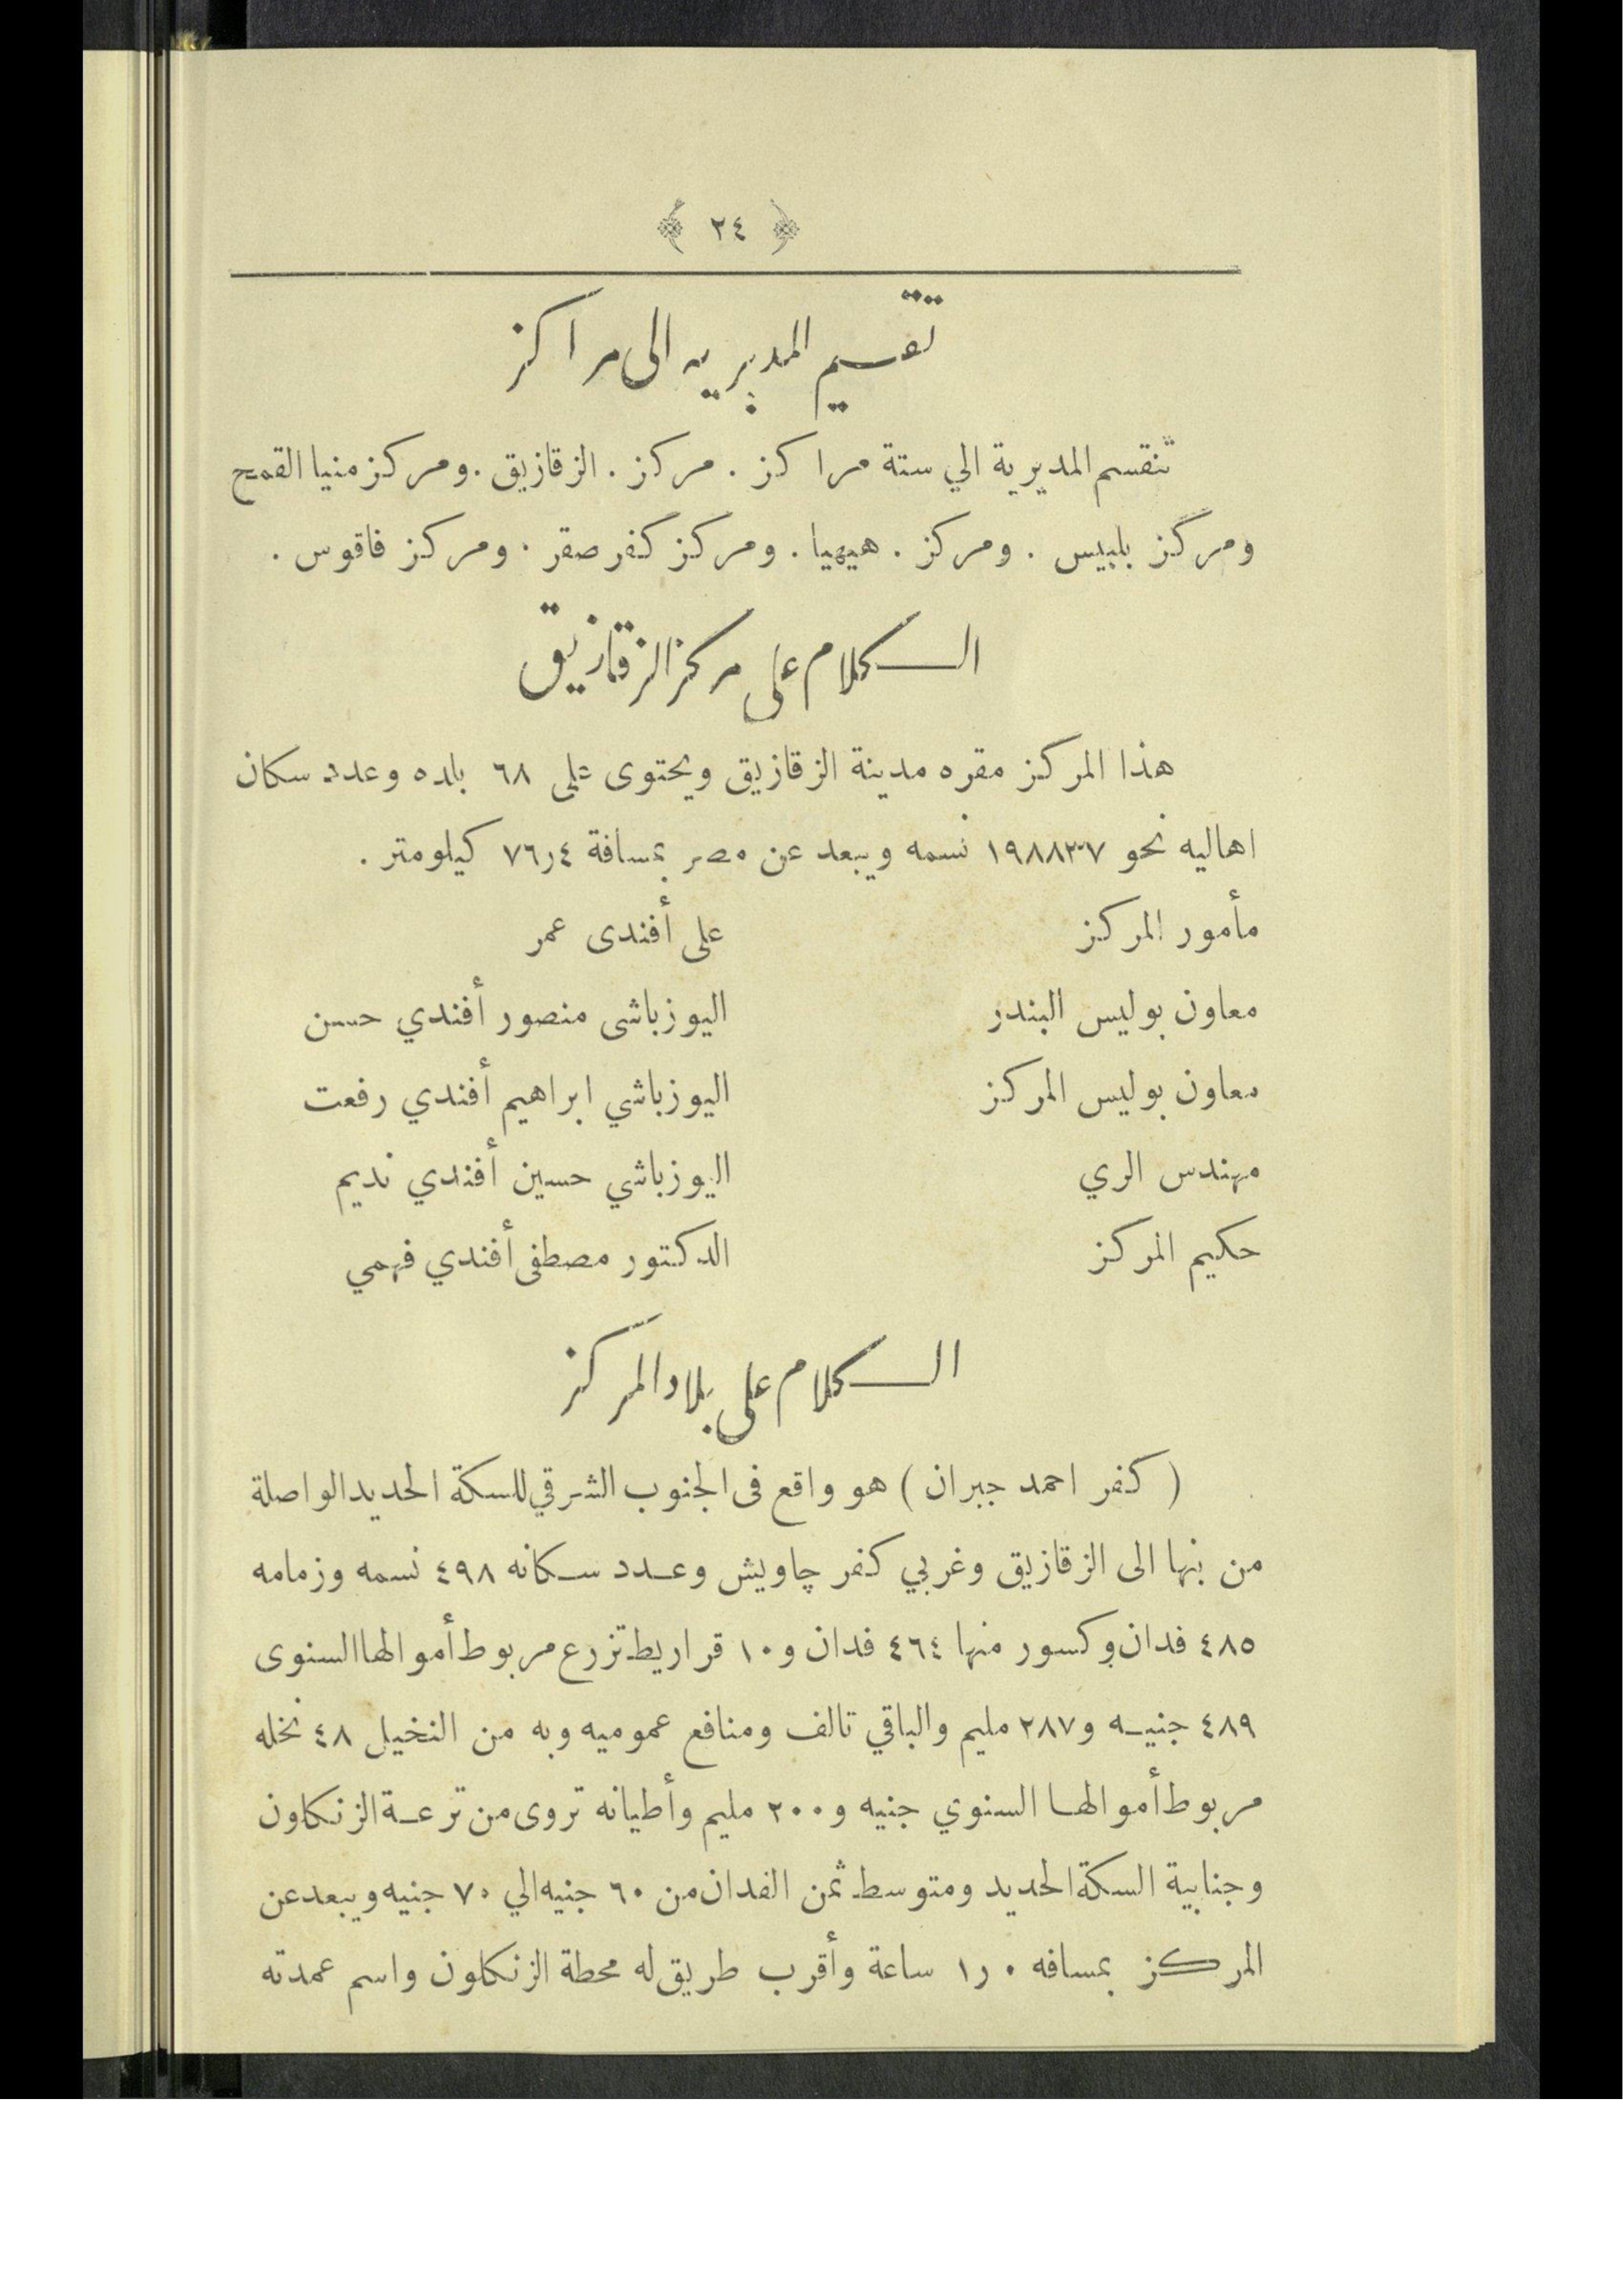 ﴿ ٢٤ ﴾
تقسيم المديريه الى مراكز
تنقسم المديرية الي ستة مراكز . مركز . الزقازيق . ومركز منيا القمح
ومركز بلبيس . ومركز . هيهيا . ومركز كفر صقر . ومركز فاقوس .
الكلام على مركز الزقازيق
هذا المركز مقره مدينة الزقازيق ويحتوى على ٦٨ بلده وعدد سكان
اهاليه نحو ١٩٨٨٣٧ نسمه ويبعد عن مصر بمسافة ٧٦٫٤ كيلومتر .
مأمور المركز على أفندى عمر
معاون بوليس البندر اليوزباشى منصور أفندي حسن
معاون بوليس المركز اليوزباشي ابراهيم أفندي رفعت
مهندس الري اليوزباشي حسين أفندي نديم
حكيم المركز الدكتور مصطفى أفندي فهمي
الكلام على بلاد المركز
( كفر احمد جبران ) هو واقع فى الجنوب الشرقي للسكة الحديد الواصلة
من بنها الى الزقازيق وغربي كفر چاويش وعدد سكانه ٤٩٨ نسمه وزمامه
٤٨٥ فدان وكسور منها ٤٦٤ فدان و١٠ قراريط تزرع مربوط أموالها السنوى
٤٨٩ جنيه و٢٨٧ مليم والباقي تالف ومنافع عموميه وبه من النخيل ٤٨ نخله
مربوط أموالها السنوي جنيه و٢٠٠ مليم وأطيانه تروى من ترعة الزنكاون
وجنابية السكة الحديد ومتوسط ثمن الفدان من ٦٠ جنيه الي ٧٠ جنيه ويبعد عن
المركز بمسافه ١٫٠ ساعة وأقرب طريق له محطة الزنكلون واسم عمدته